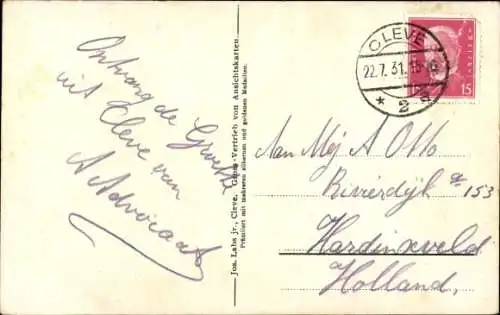 Ontvang de Groete
uit Cleve van
A Advocaat
Jos. Labs jr., Cleve, Gross-Vertrieb von Ansichtskarten
Prämiiert mit mehreren silbernen und goldenen Medaillen.
CLEVE
22.7.31.
* 2 a
15
Aan Mej A Otto
Rivierdijk a. 153
Hardinxveld
Holland,